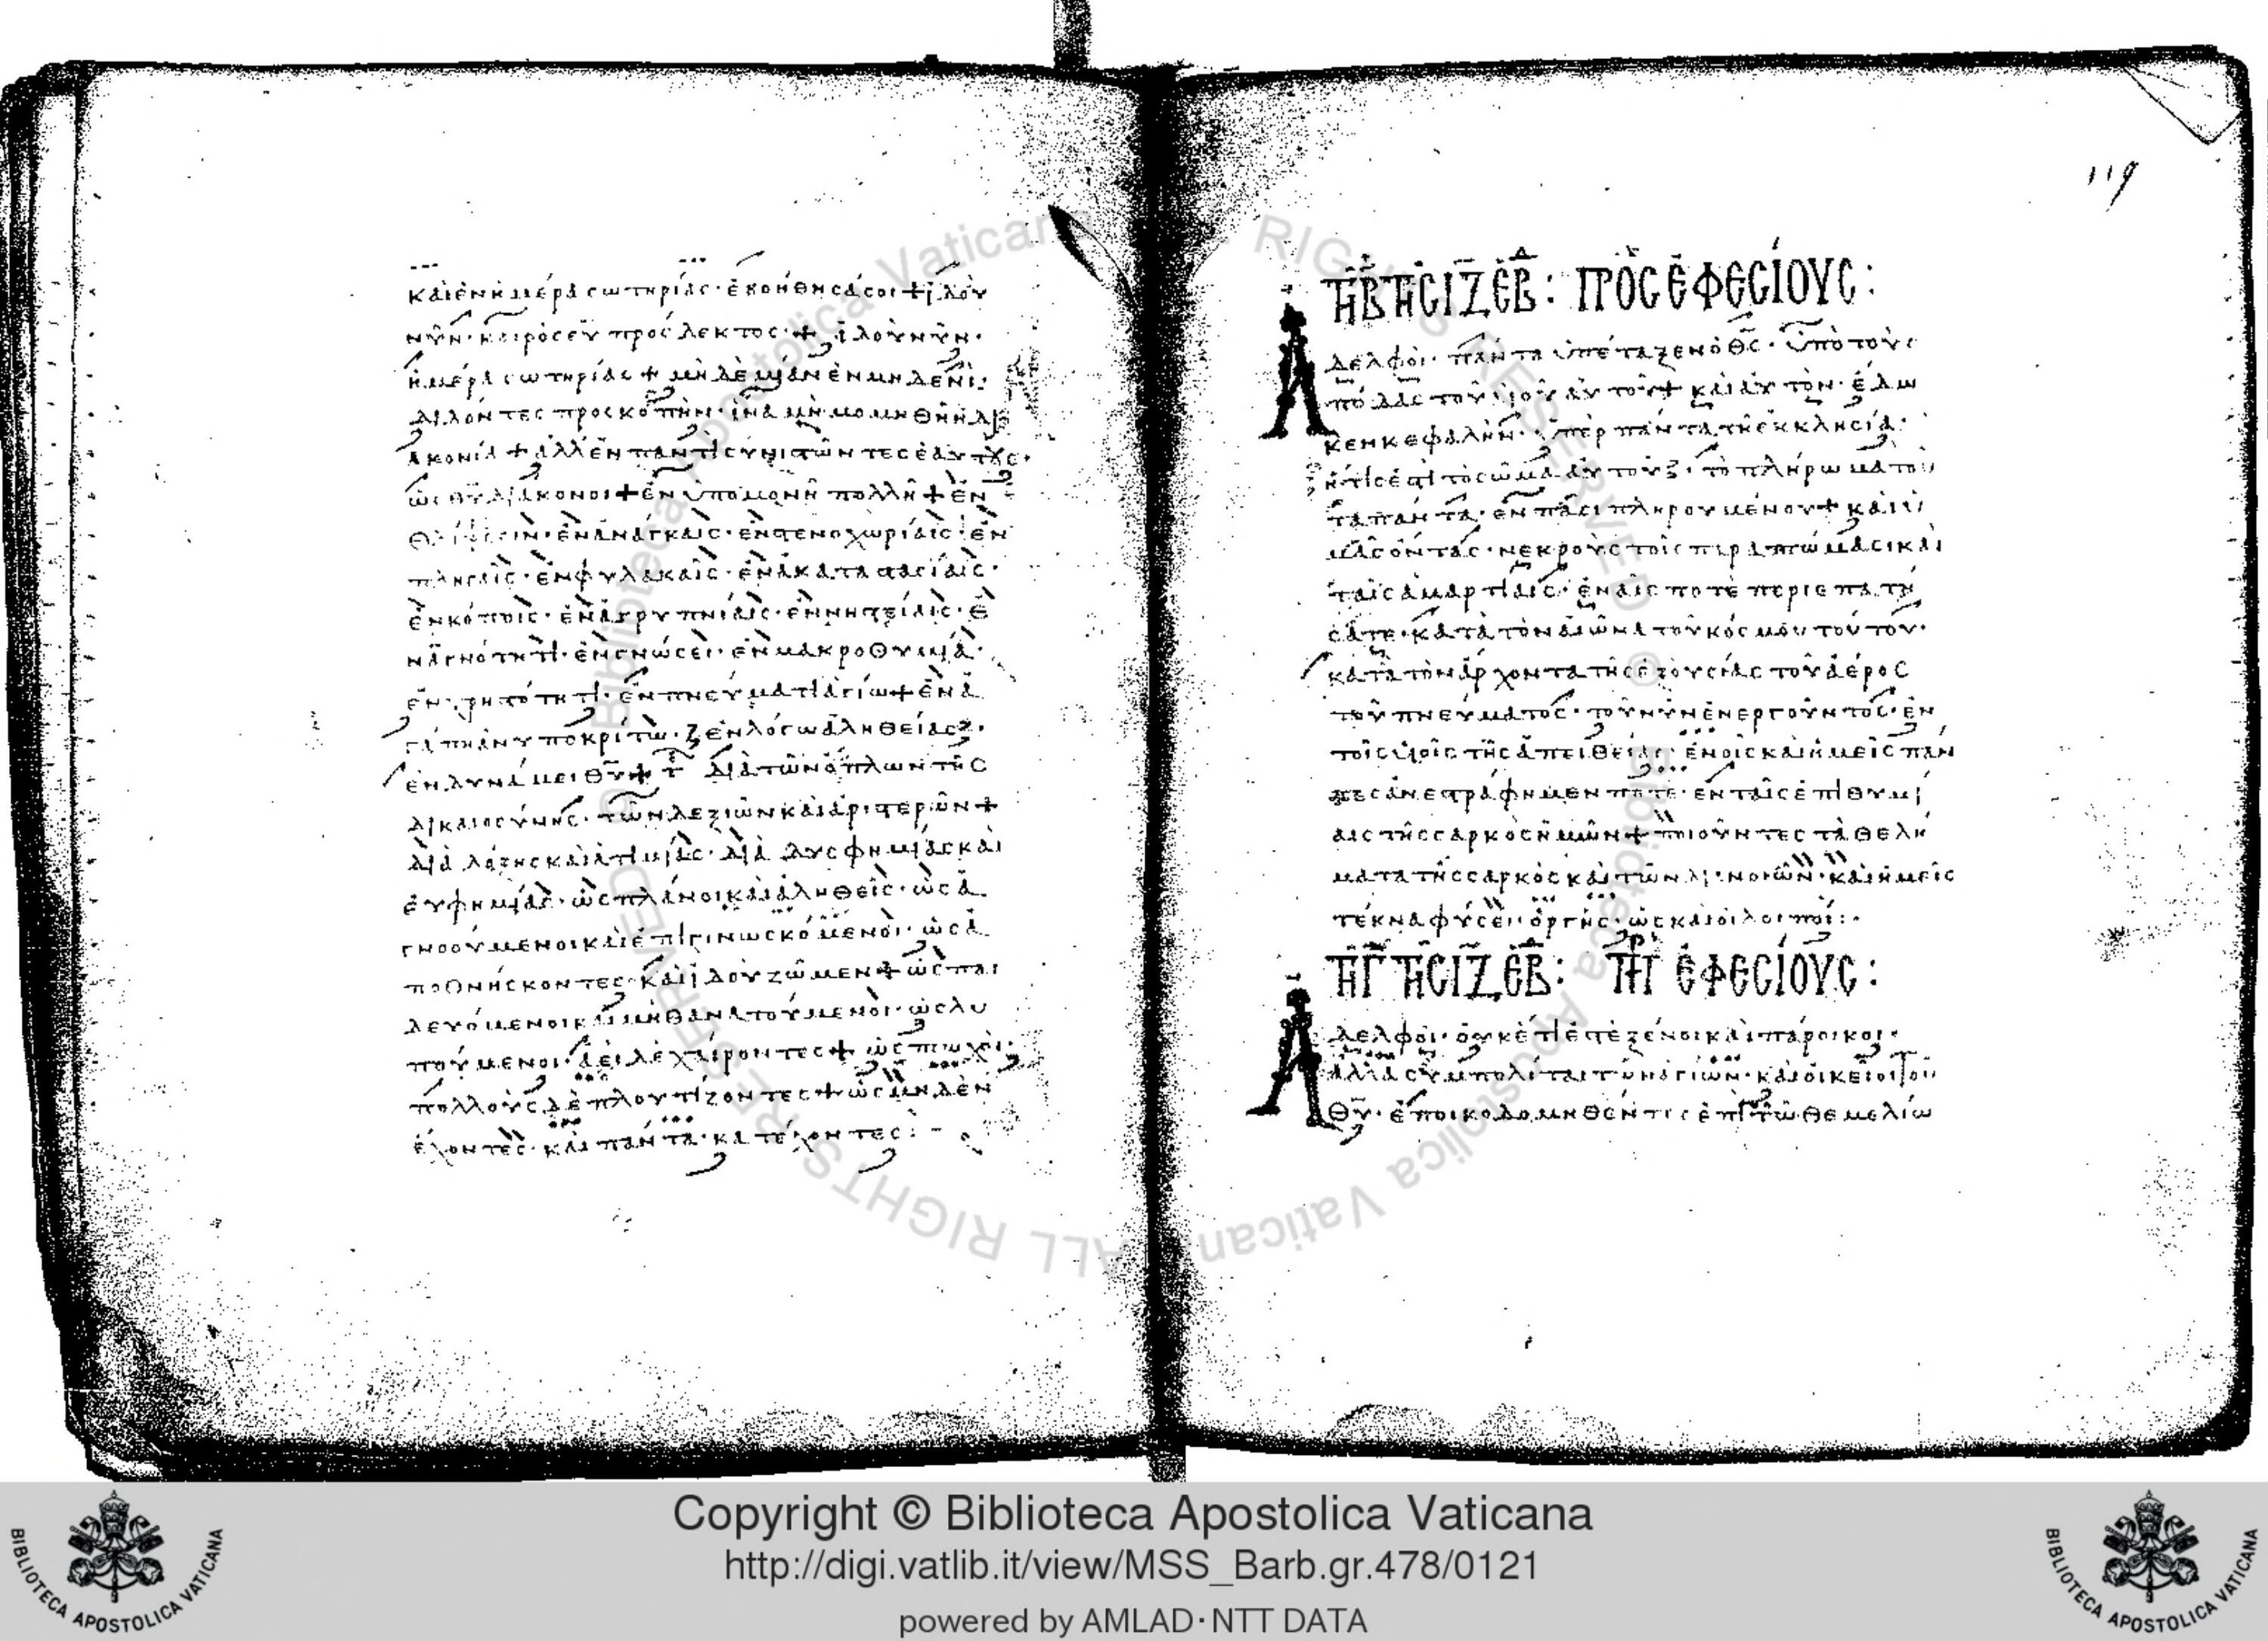 καὶ ἐν ἡμέρα σωτηρίας· ἐβοήθησά σοι + ἰδοὺ
νῦν· καιρὸς εὐπρόσλεκτος + ἰδοὺ νῦν·
ἡμέρα σωτηρίας + μηδεμίαν ἐν μηδενὶ
διδόντες προσκοπὴν· ἵνα μὴ μομηθῆ ἡ δι
ακονία + ἀλλ ἐν παντὶ συνιστῶντες ἑαυτοὺς·
ὡς θυ διάκονοι + ἐν ὑπομονῆ πολλῆ + ἐν
θλίψεσιν· ἐν ἀνάγκαις· ἐν στενοχωρίαις· ἐν
πληγαῖς· ἐν φυλακαῖς· ἐν ἀκαταστασίαις·
ἐν κόποις· ἐν ἀγρυπνίαις· ἐν νηστείαις· ἐ
ν ἁγνότητι· ἐν γνώσει· ἐν μακροθυμία·
ἐν χρηστότητι· ἐν πνεύματι ἁγίω + ἐν ἀ
γάπη ἀνυποκρίτω· ἐν λόγω ἀληθείας·
ἐν δυνάμει θυ + διὰ τῶν ὅπλων τῆς
δικαιοσύνης· τῶν δεξιῶν καὶ ἀριστερῶν +
διὰ δόξης καὶ ἀτιμίας· διὰ δυσφημίας καὶ
εὐφημίας· ὡς πλάνοι καὶ ἀληθεῖς· ὡς ἀ
γνοούμενοι καὶ ἐπιγινωσκόμενοι· ὡς ἀ
ποθνήσκοντες καὶ ἰδοὺ ζῶμεν + ὡς παι
δευόμενοι καὶ μὴ θανατούμενοι· ὡς λυ
πούμενοι· ἀεὶ δὲ χαίροντες + ὡς πτωχοὶ·
πολλοὺς δὲ πλουτίζοντες + ὡς μηδὲν
ἔχοντες· καὶ πάντα κατέχοντες:
119
τῆ β τῆς ιζ εβδ: πρὸς ἐφεσίους:
Αδελφοὶ· πάντα ὑπέταξεν ὁ θς· ὑπὸ τοὺς
πόδας τοῦ υἱοῦ αὐτοῦ + καὶ αὐτὸν· ἔδω
κεν κεφαλὴν· ὑπὲρ πάντα τῆ ἐκκλησία·
ἥτις ἐστὶ τὸ σῶμα αὐτοῦ· τὸ πλήρωμα τοῦ
τὰ πάντα· ἐν πᾶσι πληρουμένου + καὶ ὑ
μᾶς ὄντας· νεκροὺς τοῖς παραπτώμασι καὶ
ταῖς ἁμαρτίαις· ἐν αἷς ποτὲ περιεπατή
σατε· κατὰ τὸν αἰῶνα τοῦ κόσμου τούτου·
κατὰ τὸν ἄρχοντα τῆς ἐξουσίας τοῦ ἀέρος
τοῦ πνεύματος· τοῦ νῦν ἐνεργοῦντος· ἐν
τοῖς υἱοῖς τῆς ἀπειθείας· ἐν οἷς καὶ ἡμεῖς πάν
τες ἀνεστράφημεν ποτὲ· ἐν ταῖς ἐπιθυμί
αις τῆς σαρκὸς ἡμῶν + ποιοῦντες τὰ θελή
ματα τῆς σαρκὸς καὶ τῶν διανοιῶν· καὶ ἡμεῖς
τέκνα φύσει ὀργῆς· ὡς καὶ οἱ λοιποὶ:
τῆ γ τῆς ιζ εβδ: πρ ἐφεσίους:
Αδελφοὶ· οὐκέτι ἐστὲ ξένοι καὶ πάροικοι·
ἀλλὰ συμπολίται τῶν ἁγίων· καὶ οἰκεῖοι τοῦ
θυ· ἐποικοδομηθέντες ἐπὶ τῶ θεμελίω
Copyright © Biblioteca Apostolica Vaticana
http://digi.vatlib.it/view/MSS_Barb.gr.478/0121
powered by AMLAD·NTT DATA
BIBLIOTECA APOSTOLICA VATICANA
BIBLIOTECA APOSTOLICA VATICANA